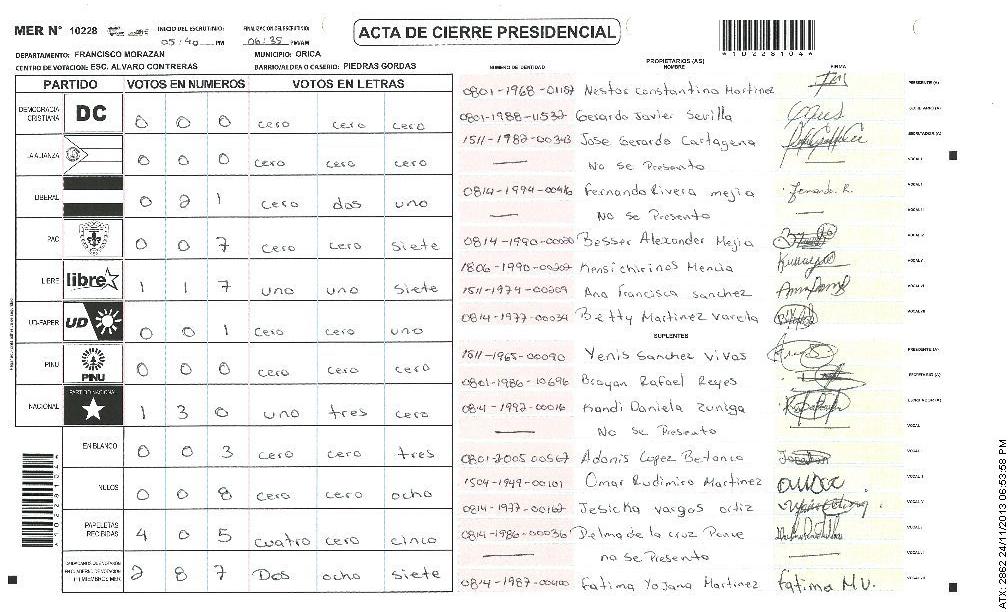 MER N° 10228
INICIO DEL ESCRUTINIO:
05:40 PM
FINALIZACION DEL ESCRUTINIO:
06:35 PM/AM
ACTA DE CIERRE PRESIDENCIAL
*10228104*
DEPARTAMENTO: FRANCISCO MORAZAN
MUNICIPIO: ORICA
CENTRO DE VOTACION: ESC. ALVARO CONTRERAS
BARRIO/ALDEA O CASERIO: PIEDRAS GORDAS
PARTIDO VOTOS EN NUMEROS VOTOS EN LETRAS
DEMOCRACIA CRISTIANA DC 0 0 0 cero cero cero
LA ALIANZA 0 0 0 cero cero cero
LIBERAL 0 2 1 cero dos uno
PAC 0 0 7 cero cero siete
LIBRE libre 1 1 7 uno uno siete
UD-FAPER UD 0 0 1 cero cero uno
PINU PINU 0 0 0 cero cero cero
NACIONAL PARTIDO NACIONAL 1 3 0 uno tres cero
EN BLANCO 0 0 3 cero cero tres
NULOS 0 0 8 cero cero ocho
PAPELETAS RECIBIDAS 4 0 5 cuatro cero cinco
CIUDADANOS QUE VOTARON EN CUADERNO DE VOTACION (+) MIEMBROS MER 2 8 7 Dos ocho siete
PROPIETARIOS (AS)
NUMERO DE IDENTIDAD NOMBRE FIRMA
Nestor Constantino Martinez PRESIDENTE (A)
0801-1988-11537 Gerardo Javier Sevilla SECRETARIO (A)
1511-1982-00343 Jose Gerardo Cartagena ESCRUTADOR (A)
No se Presento VOCAL I
0814-1994-00416 Fernando Rivera mejia Fernando R. VOCAL II
No se Presento VOCAL III
Besser Alexander Mejia
Kensi chirinos Mencia VOCAL V
1511-1974-00209 Ana Francisca Sanchez VOCAL VI
0814-1977-00034 Betty Martinez varela VOCAL VII
SUPLENTES
1511-1965-00090 Yenis Sanchez vivas PRESIDENTE (A)
0801-1986-10696 Brayan Rafael Reyes SECRETARIO (A)
0814-1992-00016 Kandi Daniela zuniga ESCRUTADOR (A)
No se Presento VOCAL I
0801-2005-00567 Adonis Lopez Betanco
1504-1949-00101 Omar Rudimiro Martinez
0814-1977-00162 Jesicka vargas ortiz
0814-1986-00036 Delma de la cruz Ponce
no se Presento
Fatima Yojana Martinez Fatima M.V. VOCAL VII
ATX-2962 24/11/2013 06:53:58 PM